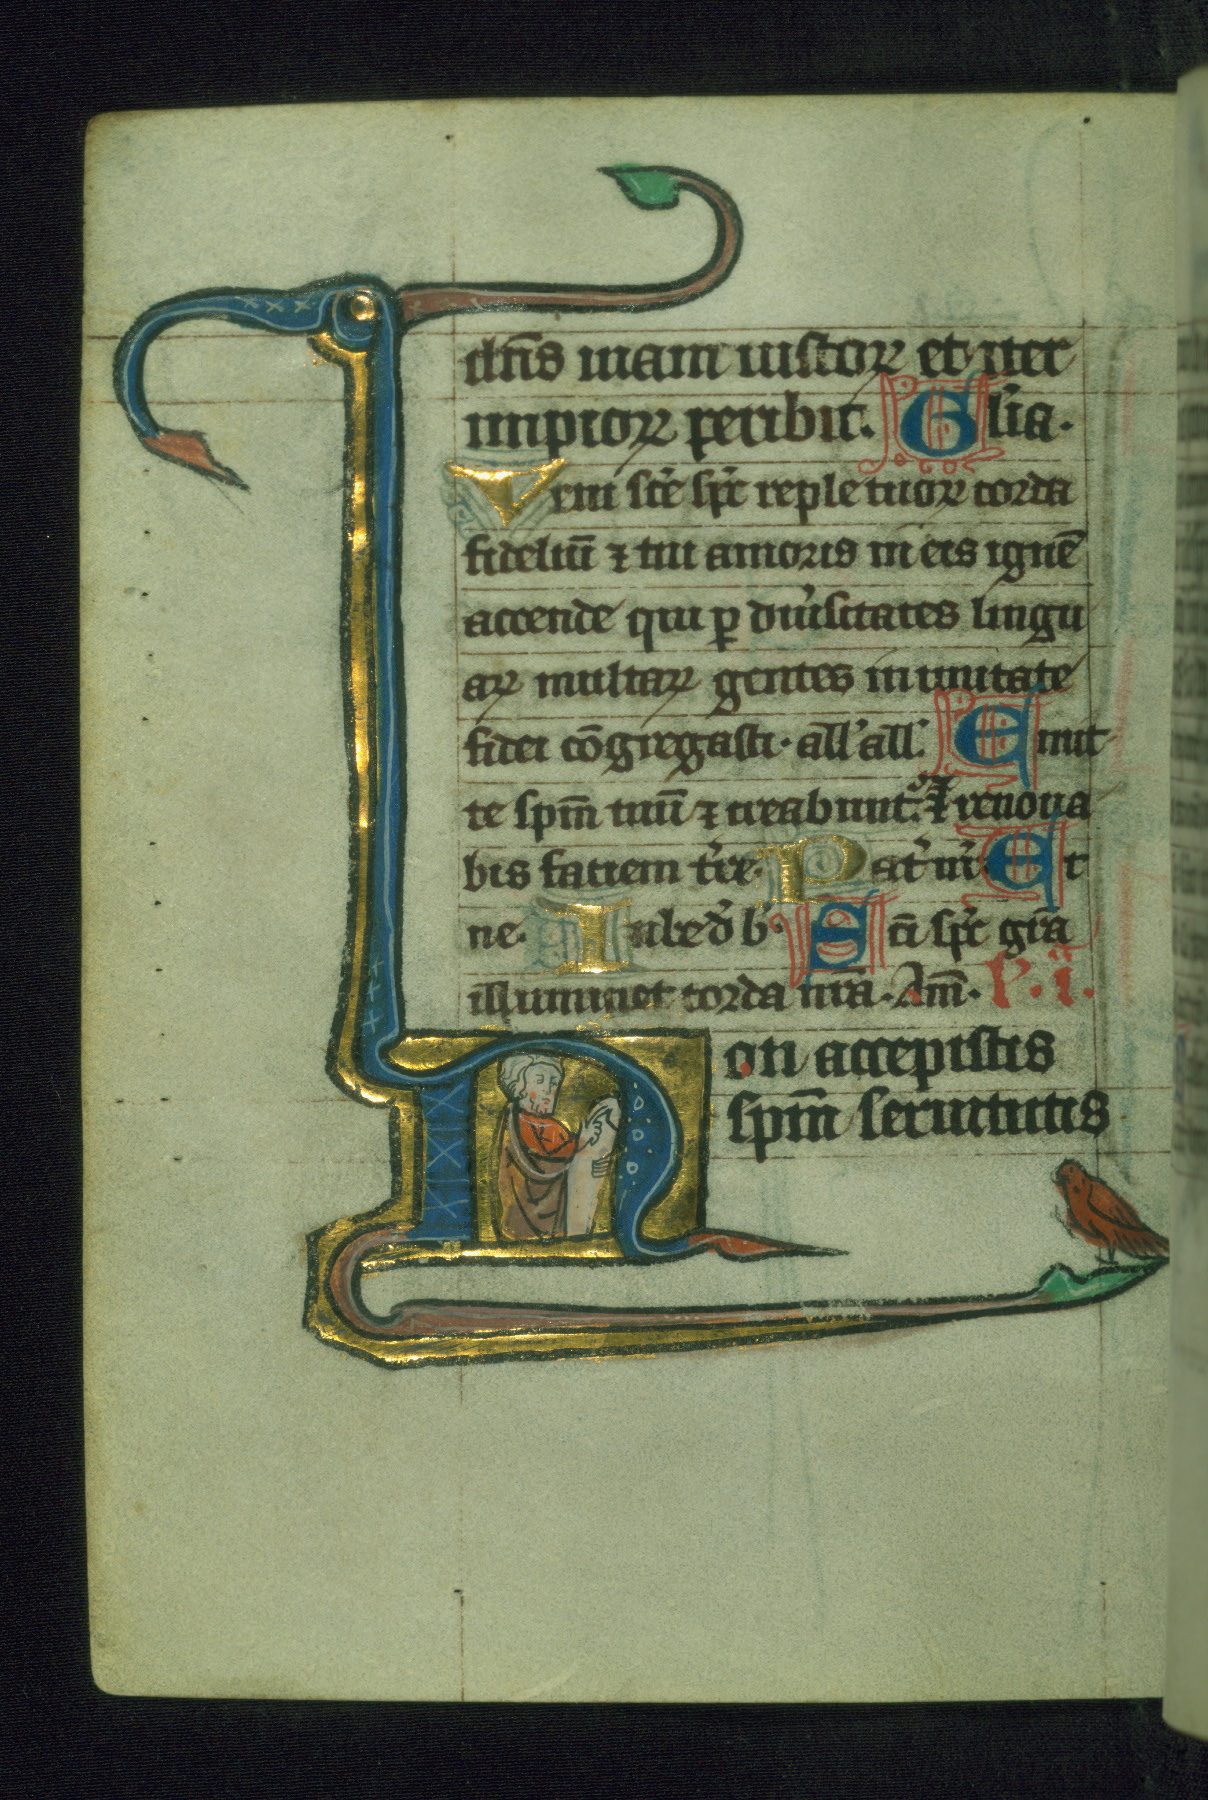 dn̄s uiam iustoꝝ et iter
impioꝝ peribit. Gl'ia.
Veni sc̄e sp̄c reple tuoꝝ corda
fideliū ⁊ tui amoris in eis ignē
accende qui ꝑ diu'sitates lingu
aꝝ multaꝝ gentes in unitate
fidei cōgregasti. all' all'. Emit
te spm̄ tuū ⁊ creabunt'. Et renoua
bis faciem t're. Pat' nr̄. Et
ne. Iube d' b' Sc̄i sp̄c gr̄a
illuminet corda nr̄a. Am̄. l'. i.
Non accepistis
spm̄ seruitutis